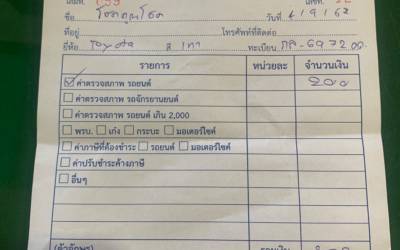 เล่มที่ 159 เลขที่
ชื่อ วันที่ 4/9/62
ที่อยู่ โทรศัพท์ที่ติดต่อ
ยี่ห้อ Toyota สี เทา ทะเบียน กล-6972
รายการ หน่วยละ จำนวนเงิน
ค่าตรวจสภาพ รถยนต์ 200
ค่าตรวจสภาพ รถจักรยานยนต์
ค่าตรวจสภาพ รถยนต์ เกิน 2,000
พรบ. เก๋ง กระบะ มอเตอร์ไซค์
ค่าภาษีที่ต้องชำระ รถยนต์ มอเตอร์ไซค์
ค่าปรับชำระค้างภาษี
อื่นๆ
(ตัวอักษร) รวมเงิน